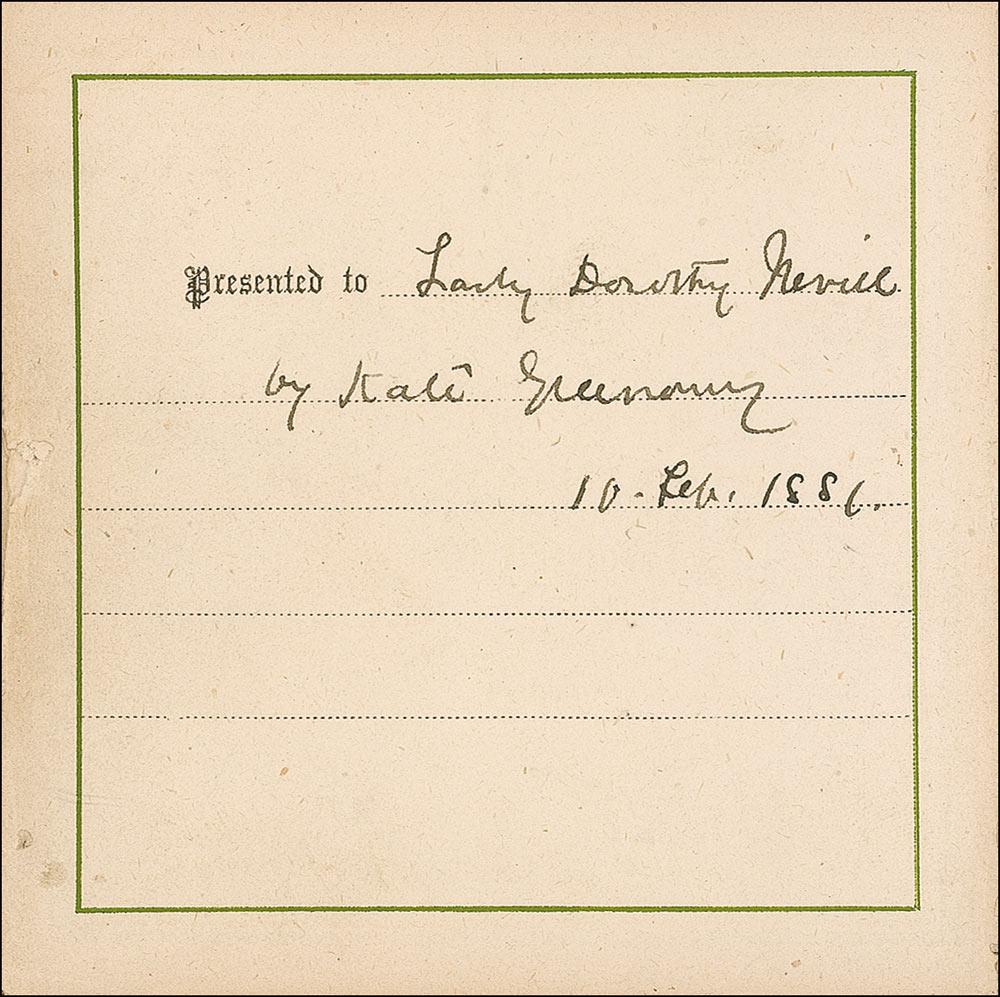 Presented to Lady Dorothy Nevill
by Kate Greenaway
10 - Feb. 1886.